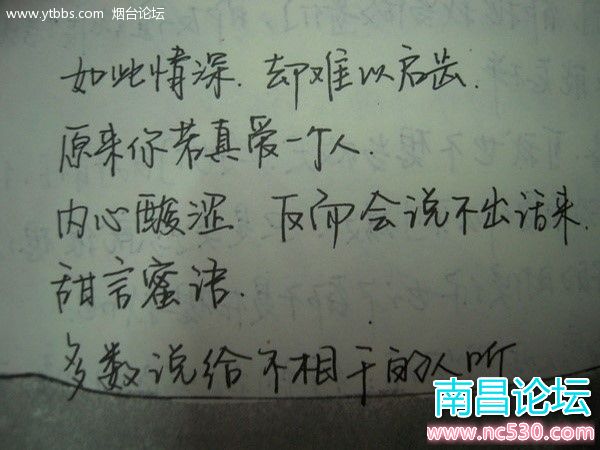 www.ytbbs.com 烟台论坛
如此情深.却难以启齿.
原来你若真爱一个人.
内心酸涩 反而会说不出话来.
甜言蜜语.
多数说给不相干的人听
南昌论坛
www.nc530.com